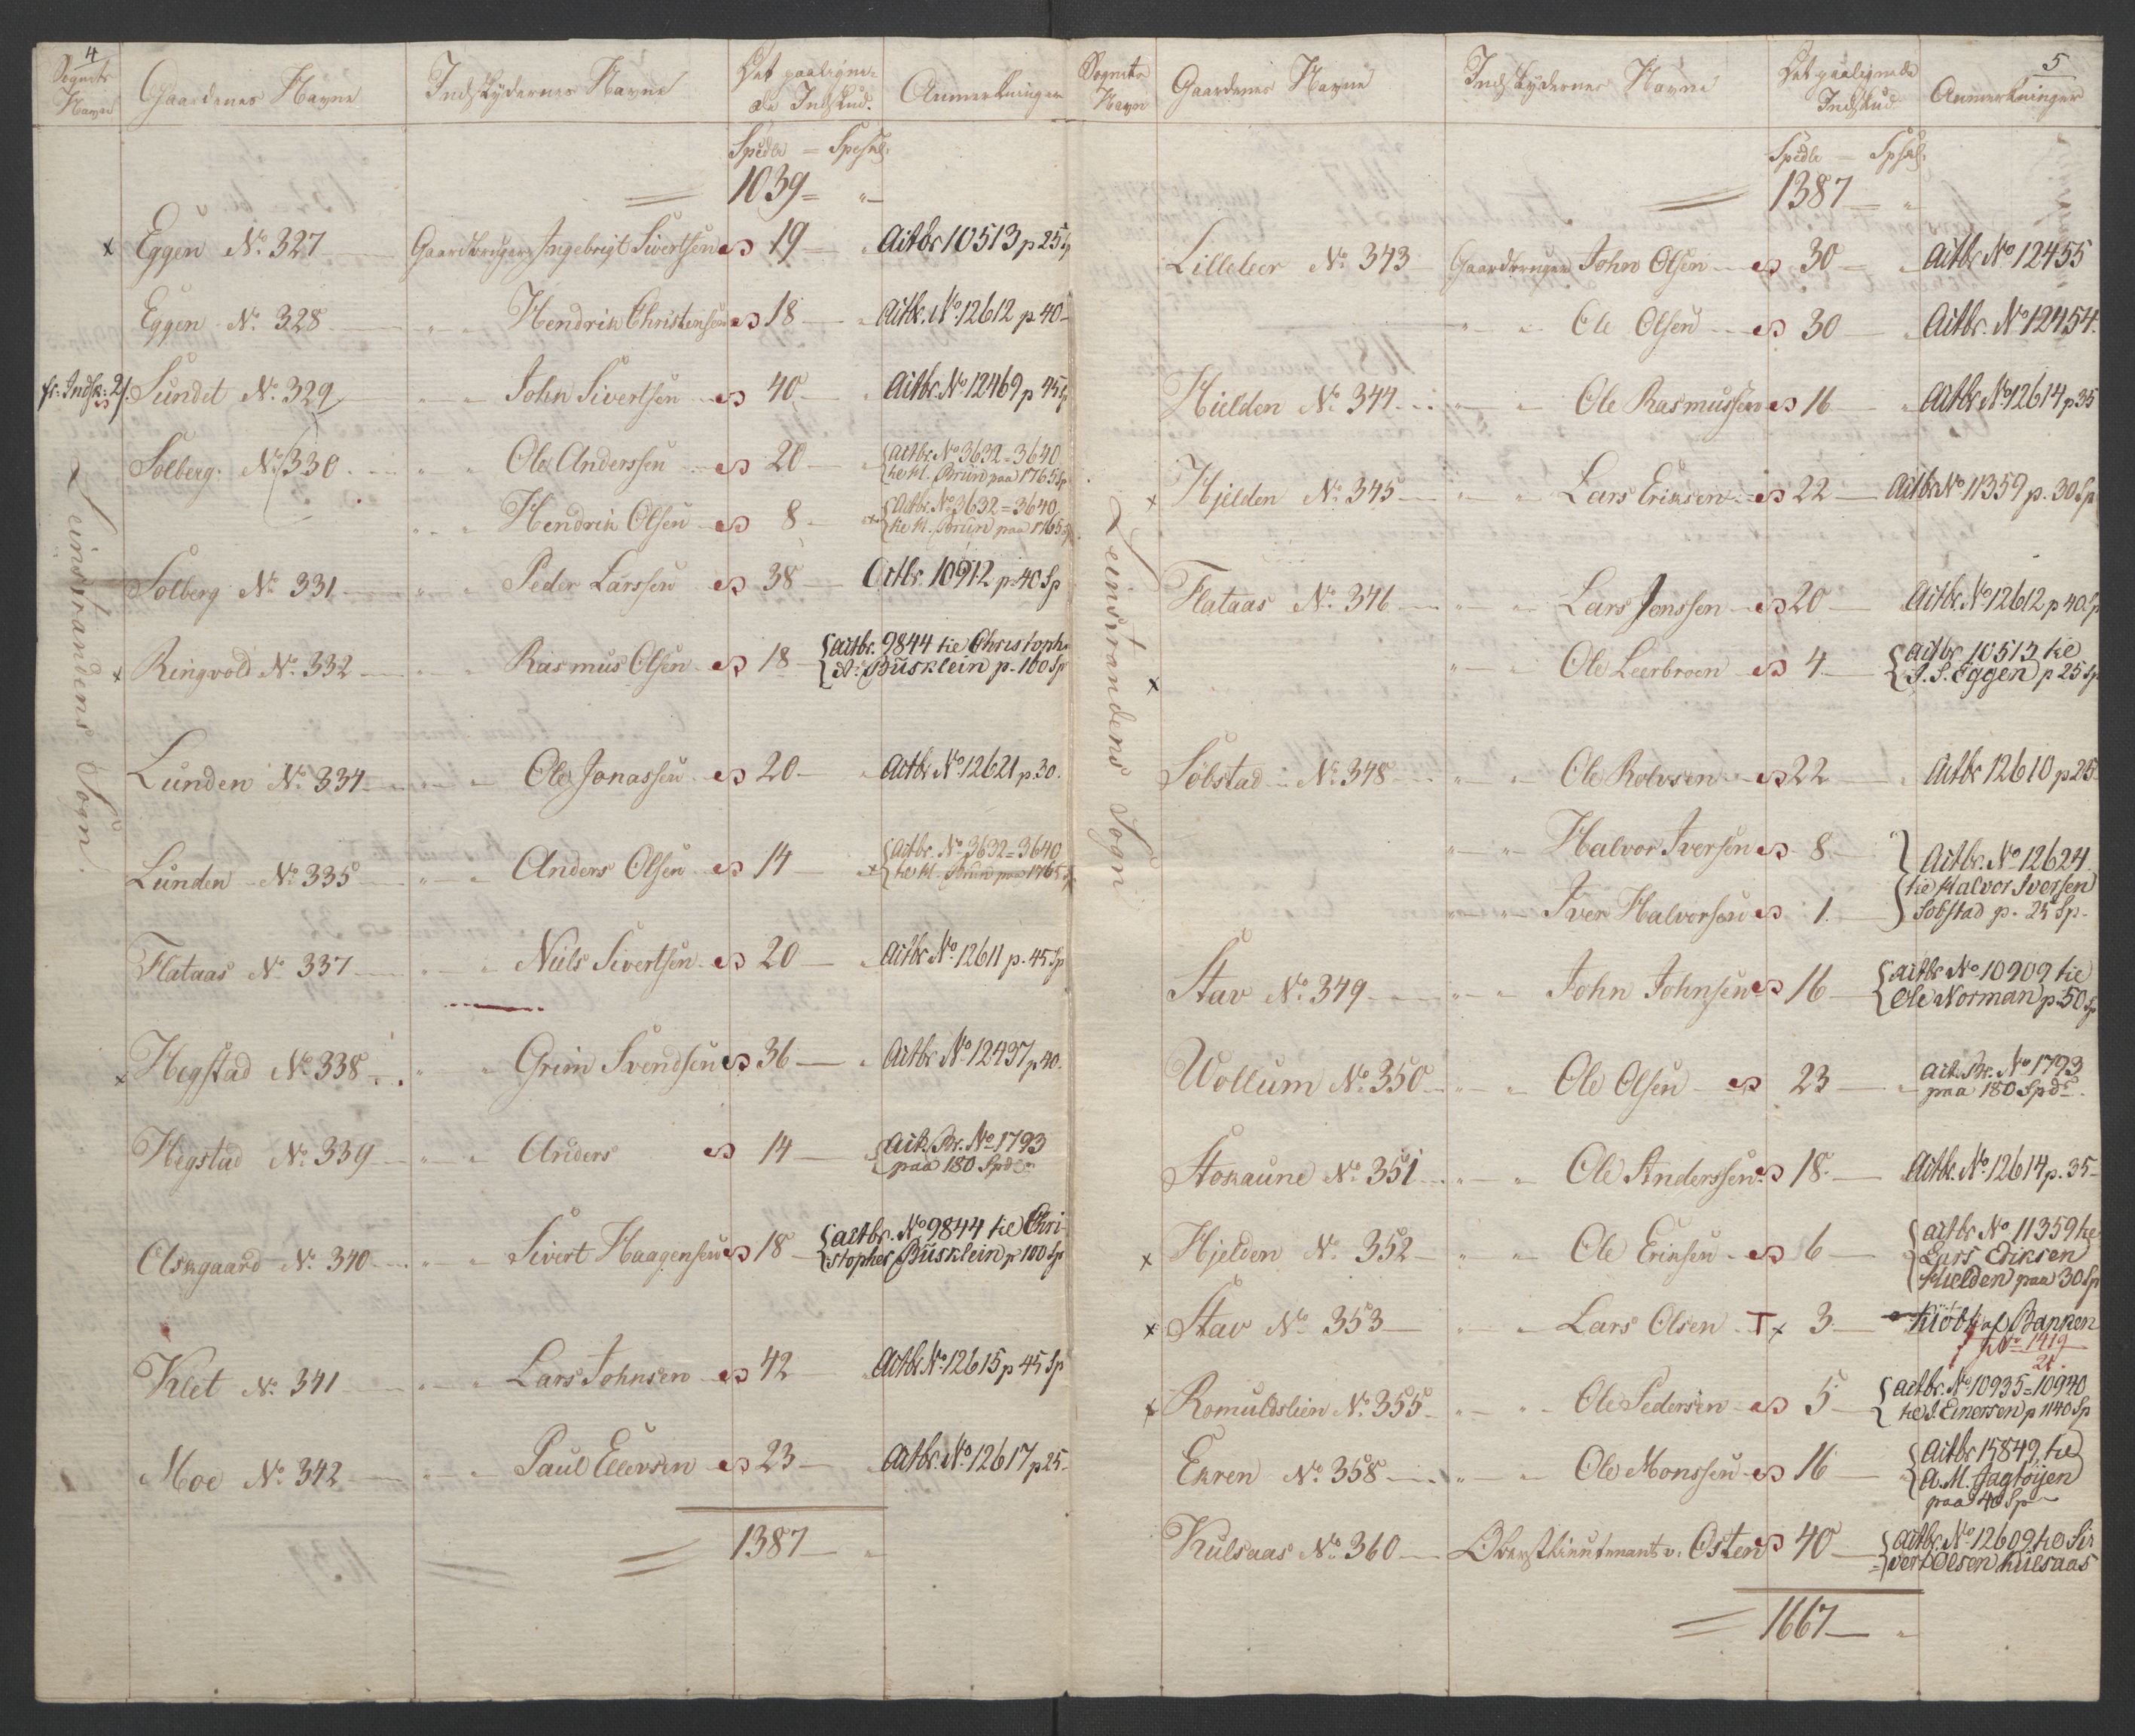 4
Sognets Navn Gaardenes Navne Indskydernes Navne Det paalignede Indskud. Anmerkninger
Spedlr = Spesk:
1039 = "
Leinstrandens Sogn.
x Eggen No. 327 Gaardbruger Ingebrigt Sivertsen 19 " Actbr 10513 p 25 Sp
Eggen No. 328 " " Hendrik Christensen 18 " Actbr. No. 12612 p 40
fr. Indsk: 21. Sundet No. 329 " " John Sivertsen 40 " Actbr. No 12469 p 45 Sp
Solberg No. 330 " " Ole Anderssen 20 " Actbr. No 3632 = 3640
til H. Brun paa 1765 Sp
" " Hendrik Olsen 8 Actbr. No 3632 = 3640
til H. Brun paa 1765 Sp
Solberg No. 331 " " Peder Larssen 38 Actbr. 10912 p 40 Sp
x Ringvold No. 332 " " Rasmus Olsen 18 Actbr. 9844 til Christoph:
A: Busklein p. 100 Sp
Lunden No. 334 " " Ole Jonassen 20 " Actbr No 12621 p. 30.
Lunden No. 335 " " Anders Olsen 14 Actbr. No 3632 = 3640
til H. Brun paa 1765 Sp
Flataas No. 337 " " Niels Sivertsen 20 " Actbr No. 12611 p. 45 Sp
x Hegstad No. 338 " " Grim Svendsen 36 " Actbr No. 12437 p 40.
Hegstad No. 339 " " Anders 14 Act. Br. No 1793
paa 180 Spd
Olskgaard No. 340 " " Sivert Haagensen 18 Actbr. No 9844 til Chri-
stopher Busklein p 100 Sp
Klet No. 341 " " Lars Johnsen 42 " Actbr. No. 12615 p 45 Sp
Moe No. 342 " " Paul Ellevsen 23 " Actbr. No. 12617 p 25
1387 "
5
Sognets Navn Gaardenes Navne Indskydernes Navne Det paalignede Indskud Anmerkninger
Spedlr = Spsk:
1387 "
Leinstrandens Sogn
Lilleleer No. 343 Gaardbruger John Olsen 30 " Actbr No 12455
" " Ole Olsen 30 Actbr. No 12454.
Hielden No. 344 " " Ole Rasmussen 16 " Actbr No 12614 p 35
x Hjelden No. 345 " " Lars Eriksen 22 Actbr No 11359 p. 30 Sp
Flataas No. 346 " " Lars Jonssen 20 Actbr. No. 12612 p 40 Sp
x " " Ole Leerbroen 4 Actbr 10513 til
I. S. Eggen p 25 Sp
Sobstad No. 348 " " Ole Rolvsen 22 " Actbr 12610 p 25
" " Halvor Iversen 8 Actbr. No 12624
" " Iver Halvorsen 1 til Halvor Iversen
Sobstad p. 25 Sp.
Stav No. 349 " " John Johnsen 16 Actbr No 10909 til
Ole Norman p. 50 Sp
Wollum No. 350 " " Ole Olsen 23 " Act. Br. No 1793
paa 180 Spd.
Stokaune No. 351 " " Ole Anderssen 18 Actbr. No. 12614 p. 35
x Hjelden No. 352 " " Ole Eriksen 6 Actbr No 11359 til
Lars Eriksen
Hielden paa 30 Sp
x Stav No. 353 " " Lars Olsen T x 3 Kiöbt af Banken
No 1419
21.
x Romuldslien No. 355 " " Ole Pedersen 5 Actbr. No 10935 = 10940
til I. Einersen p 1140 Sp
Ekren No. 358 " " Ole Monssen 16 Actbr 15849 til
A. M. Jagtöyen
paa 40 Sp
Kulsaas No. 360 Oberstlieutenant v. Osten 40 Actbr. No 12609 til Si-
vert Olsen Kulsaas
1667 "